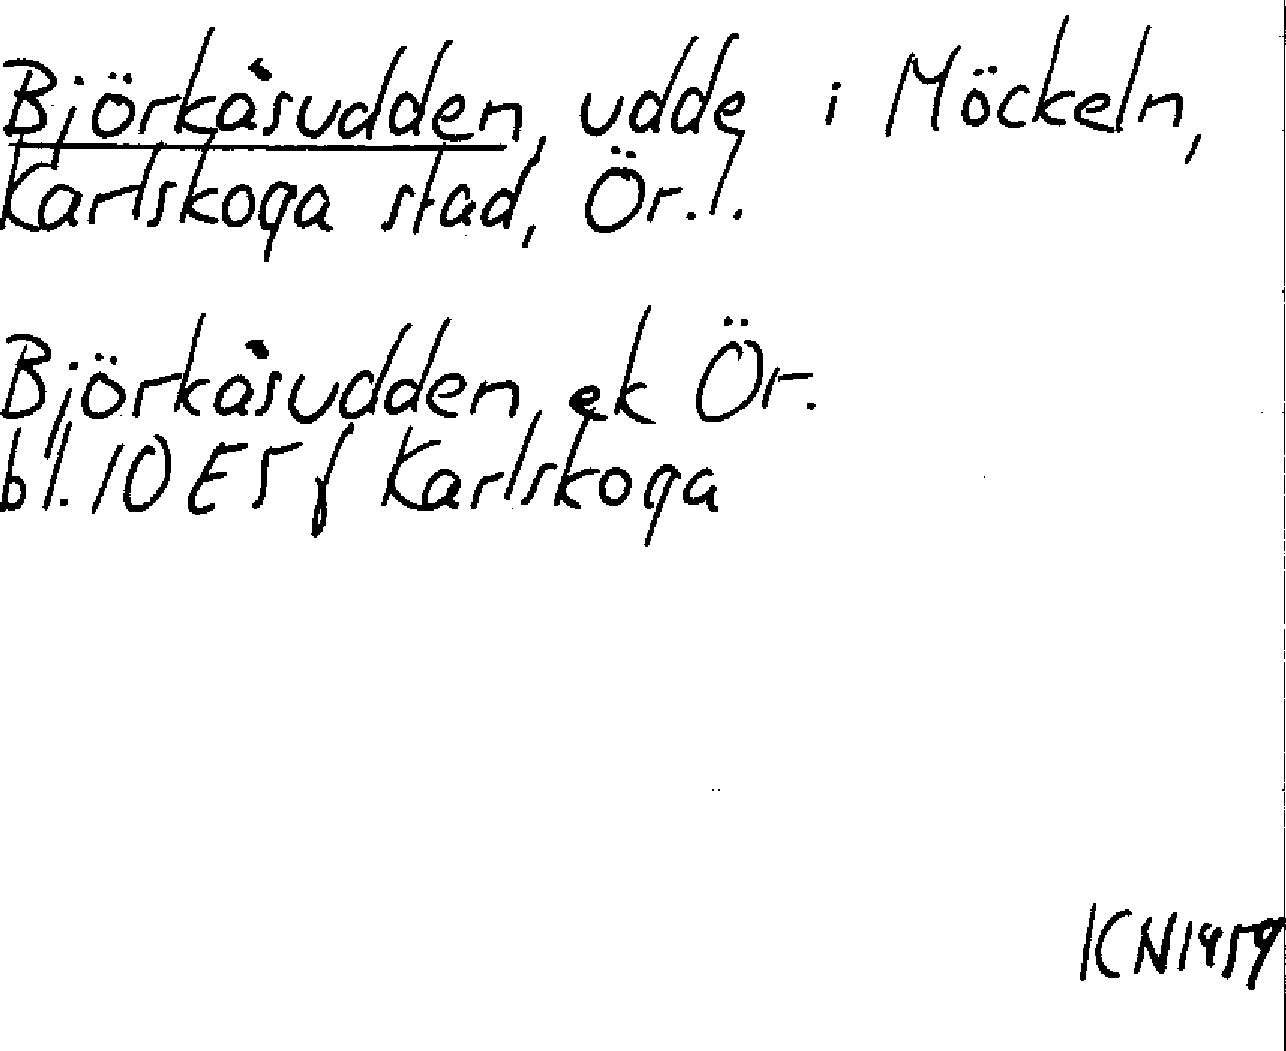 Björkåsudden, udde i Möckeln,
Karlskoga stad, Ör.l.
Björkåsudden, ek Ör.
bl. 10 E5 f Karlskoga
KN1959